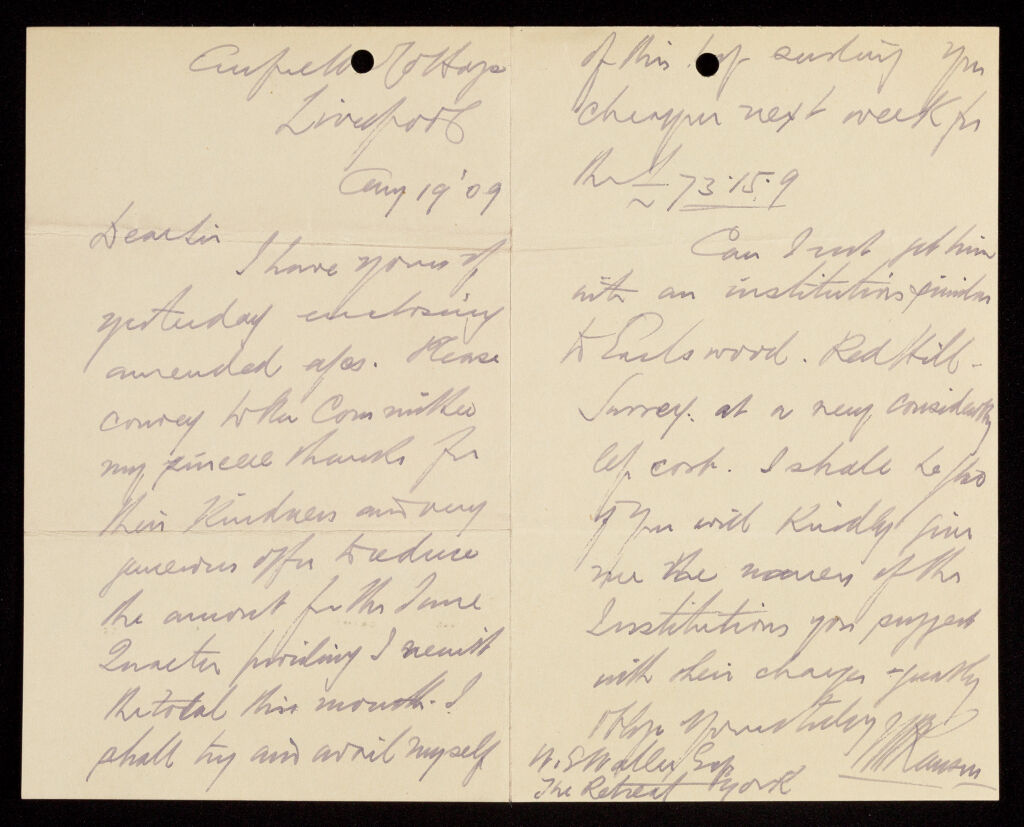 Anfield Cottage
Liverpool
Aug 19 '09
Dear Sir
I have yours of
yesterday enclosing
amended a/cs. Please
convey to the Committee
my sincere thanks for
their Kindness and very
generous offer to reduce
the amount for the June
Quarter providing I remit
the total this month. I
shall try and avail myself
of this by sending you
cheque next week for
the £73.15.9
Can I not get him
into an institution similar
to Earlswood. Red Hill -
Surrey. at a very considerably
less cost. I shall be glad
if you will Kindly give
me the names of the
Institutions you suggest
with their charges & greatly
oblige Yours truly
Ranson
W. S Waller Esq
The Retreat York